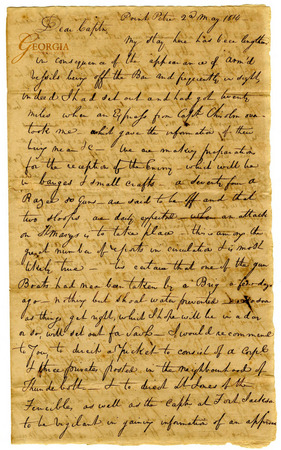 Point Petre 2d May 1814
Dear Captn
GEORGIA
My stay here has been lengthen
in consequence of the appearance of Armd
Vessels being off the Bar and frequently in sight
indeed I had set out and had got twenty
miles when an Express from Capt
took me and gave the information of their
being near &c — We are making preparation
for the reception of the Enemy which will be
in barges & small crafts a seventy four a
Razee 50 Guns are said to be off and that
two sloops are daily expected when an attack
on St Marys is to take place — this among the
great number of reports in circulation & is most
likely true — tis certain that one of the gun
Boats had near been taken by a Brig a few days
ago — nothing but shoal water prevented
as things get right, which I hope will be in a day
or so, will set out for Savh — I would recommend
to You to direct a Picket to consist of a Corpl
& three privates posted in the neighbourhood of
Thunderbolt — & to direct Lt Jones of the
Fencibles as well as the Captn at Fort Jackson
to be vigilant in gaining information of an